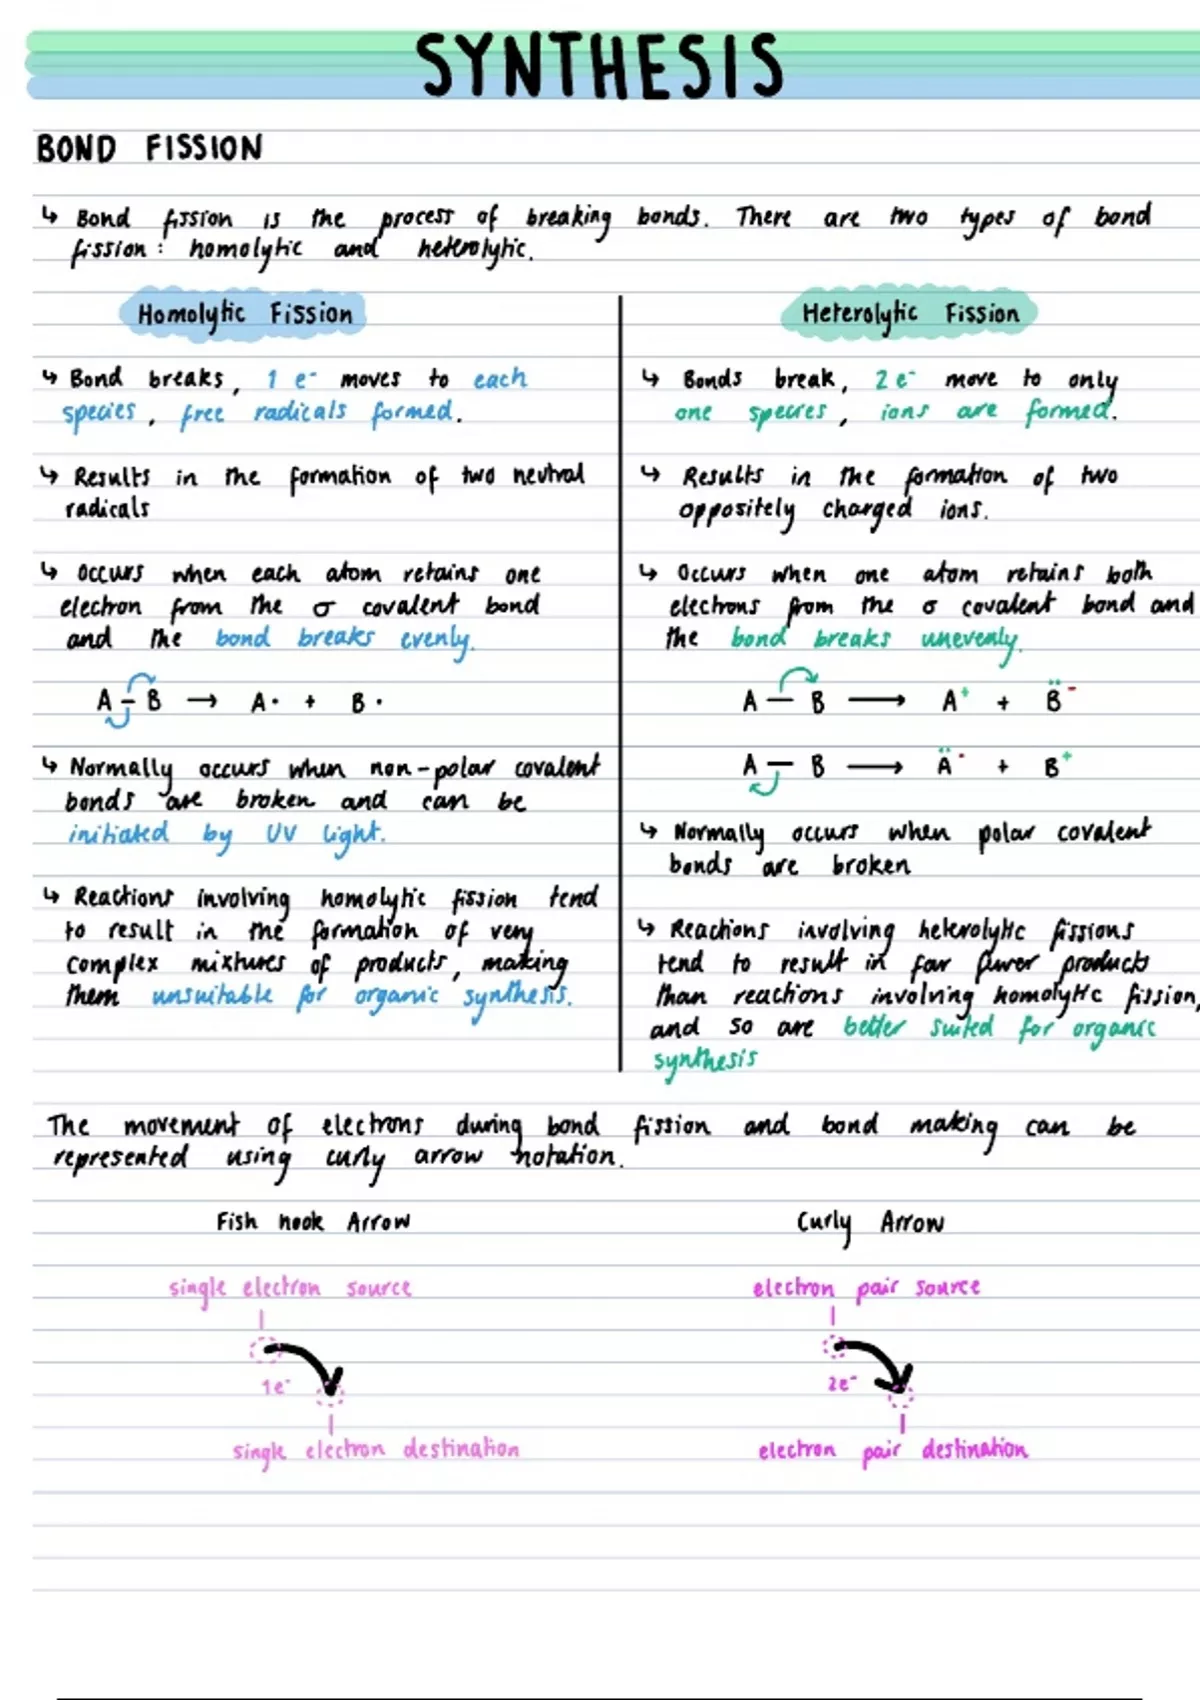 SYNTHESIS
BOND FISSION
↳ Bond fission is the process of breaking bonds. There are two types of bond
fission: homolytic and heterolytic.
Homolytic Fission
↳ Bond breaks, 1 e⁻ moves to each
species, free radicals formed.
↳ Results in the formation of two neutral
radicals
↳ Occurs when each atom retains one
electron from the σ covalent bond
and the bond breaks evenly.
A – B → A• + B•
↳ Normally occurs when non-polar covalent
bonds are broken and can be
initiated by UV light.
↳ Reactions involving homolytic fission tend
to result in the formation of very
complex mixtures of products, making
them unsuitable for organic synthesis.
Heterolytic Fission
↳ Bonds break, 2 e⁻ move to only
one species, ions are formed.
↳ Results in the formation of two
oppositely charged ions.
↳ Occurs when one atom retains both
electrons from the σ covalent bond and
the bond breaks unevenly.
A — B ⟶ A⁺ + B̈⁻
A — B ⟶ Ä⁻ + B⁺
↳ Normally occurs when polar covalent
bonds are broken
↳ Reactions involving heterolytic fissions
tend to result in far fewer products
than reactions involving homolytic fission,
and so are better suited for organic
synthesis
The movement of electrons during bond fission and bond making can be
represented using curly arrow notation.
Fish hook Arrow
single electron source
1e⁻
single electron destination
Curly Arrow
electron pair source
2e⁻
electron pair destination